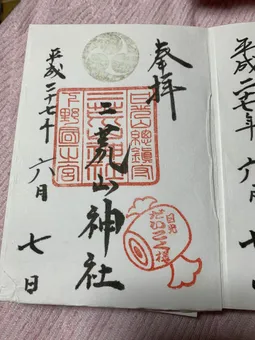 奉拝
二荒山神社
平成二十七年
六月
七日
下野國一之宮
日光
だいこく様
平成二七年
六月
七日